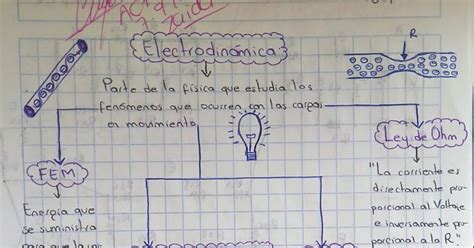 Electrodinámica
R
Parte de la física que estudia los
fenómenos que ocurren con las cargas
en movimiento
Ley de Ohm
FEM
"La corriente es
directamente pro-
porcional al Voltaje
e inversamente pro-
porcional a la R."
Energía que
se suministra
para que la